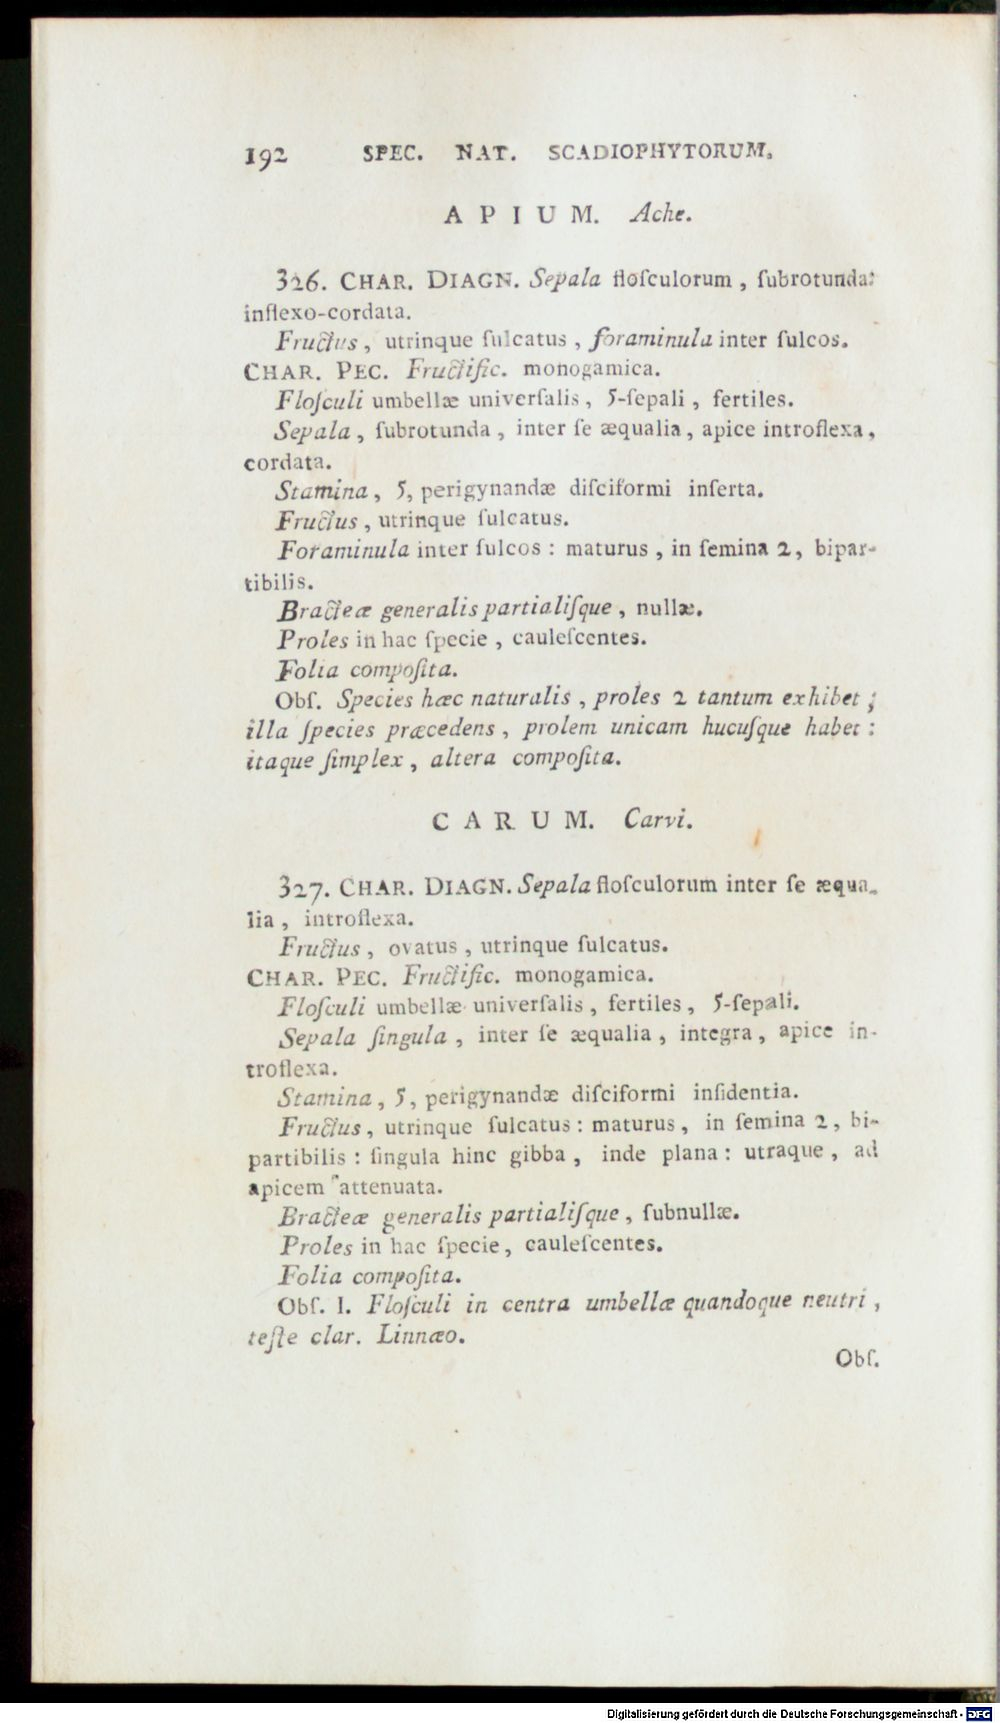 192 SPEC. NAT. SCADIOPHYTORUM.
APIUM. Ache.
326. CHAR. DIAGN. Sepala floſculorum, ſubrotunda:
inflexo-cordata.
Fructus, utrinque ſulcatus, foraminula inter ſulcos.
CHAR. PEC. Fructific. monogamica.
Floſculi umbellæ univerſalis, 5-ſepali, fertiles.
Sepala, ſubrotunda, inter ſe æqualia, apice introflexa,
cordata.
Stamina, 5, perigynandæ diſciformi inſerta.
Fructus, utrinque ſulcatus.
Foraminula inter ſulcos: maturus, in ſemina 2, bipar-
tibilis.
Bracteæ generalis partialiſque, nullæ.
Proles in hac ſpecie, cauleſcentes.
Folia compoſita.
Obſ. Species hæc naturalis, proles 2 tantum exhibet;
illa ſpecies præcedens, prolem unicam hucuſque habet:
itaque ſimplex, altera compoſita.
CARUM. Carvi.
327. CHAR. DIAGN. Sepala floſculorum inter ſe æqua-
lia, introflexa.
Fructus, ovatus, utrinque ſulcatus.
CHAR. PEC. Fructific. monogamica.
Floſculi umbellæ univerſalis, fertiles, 5-ſepali.
Sepala ſingula, inter ſe æqualia, integra, apice in-
troflexa.
Stamina, 5, perigynandæ diſciformi inſidentia.
Fructus, utrinque ſulcatus: maturus, in ſemina 2, bi-
partibilis: ſingula hinc gibba, inde plana: utraque, ad
apicem attenuata.
Bracteæ generalis partialiſque, ſubnullæ.
Proles in hac ſpecie, cauleſcentes.
Folia compoſita.
Obſ. I. Floſculi in centra umbellæ quandoque neutri,
teſte clar. Linnæo.
Obſ.
Digitalisierung gefördert durch die Deutsche Forschungsgemeinschaft - DFG